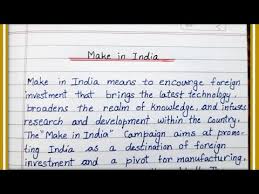 Make in India
Make in India means to encourge foreign
investment that brings the latest technology,
broadens the realm of knowledge, and infuses
research and development within the country.
The "Make in India" Campaign aims at promo-
ting India as a destination of foreign
investment and a pivot for manufacturing,